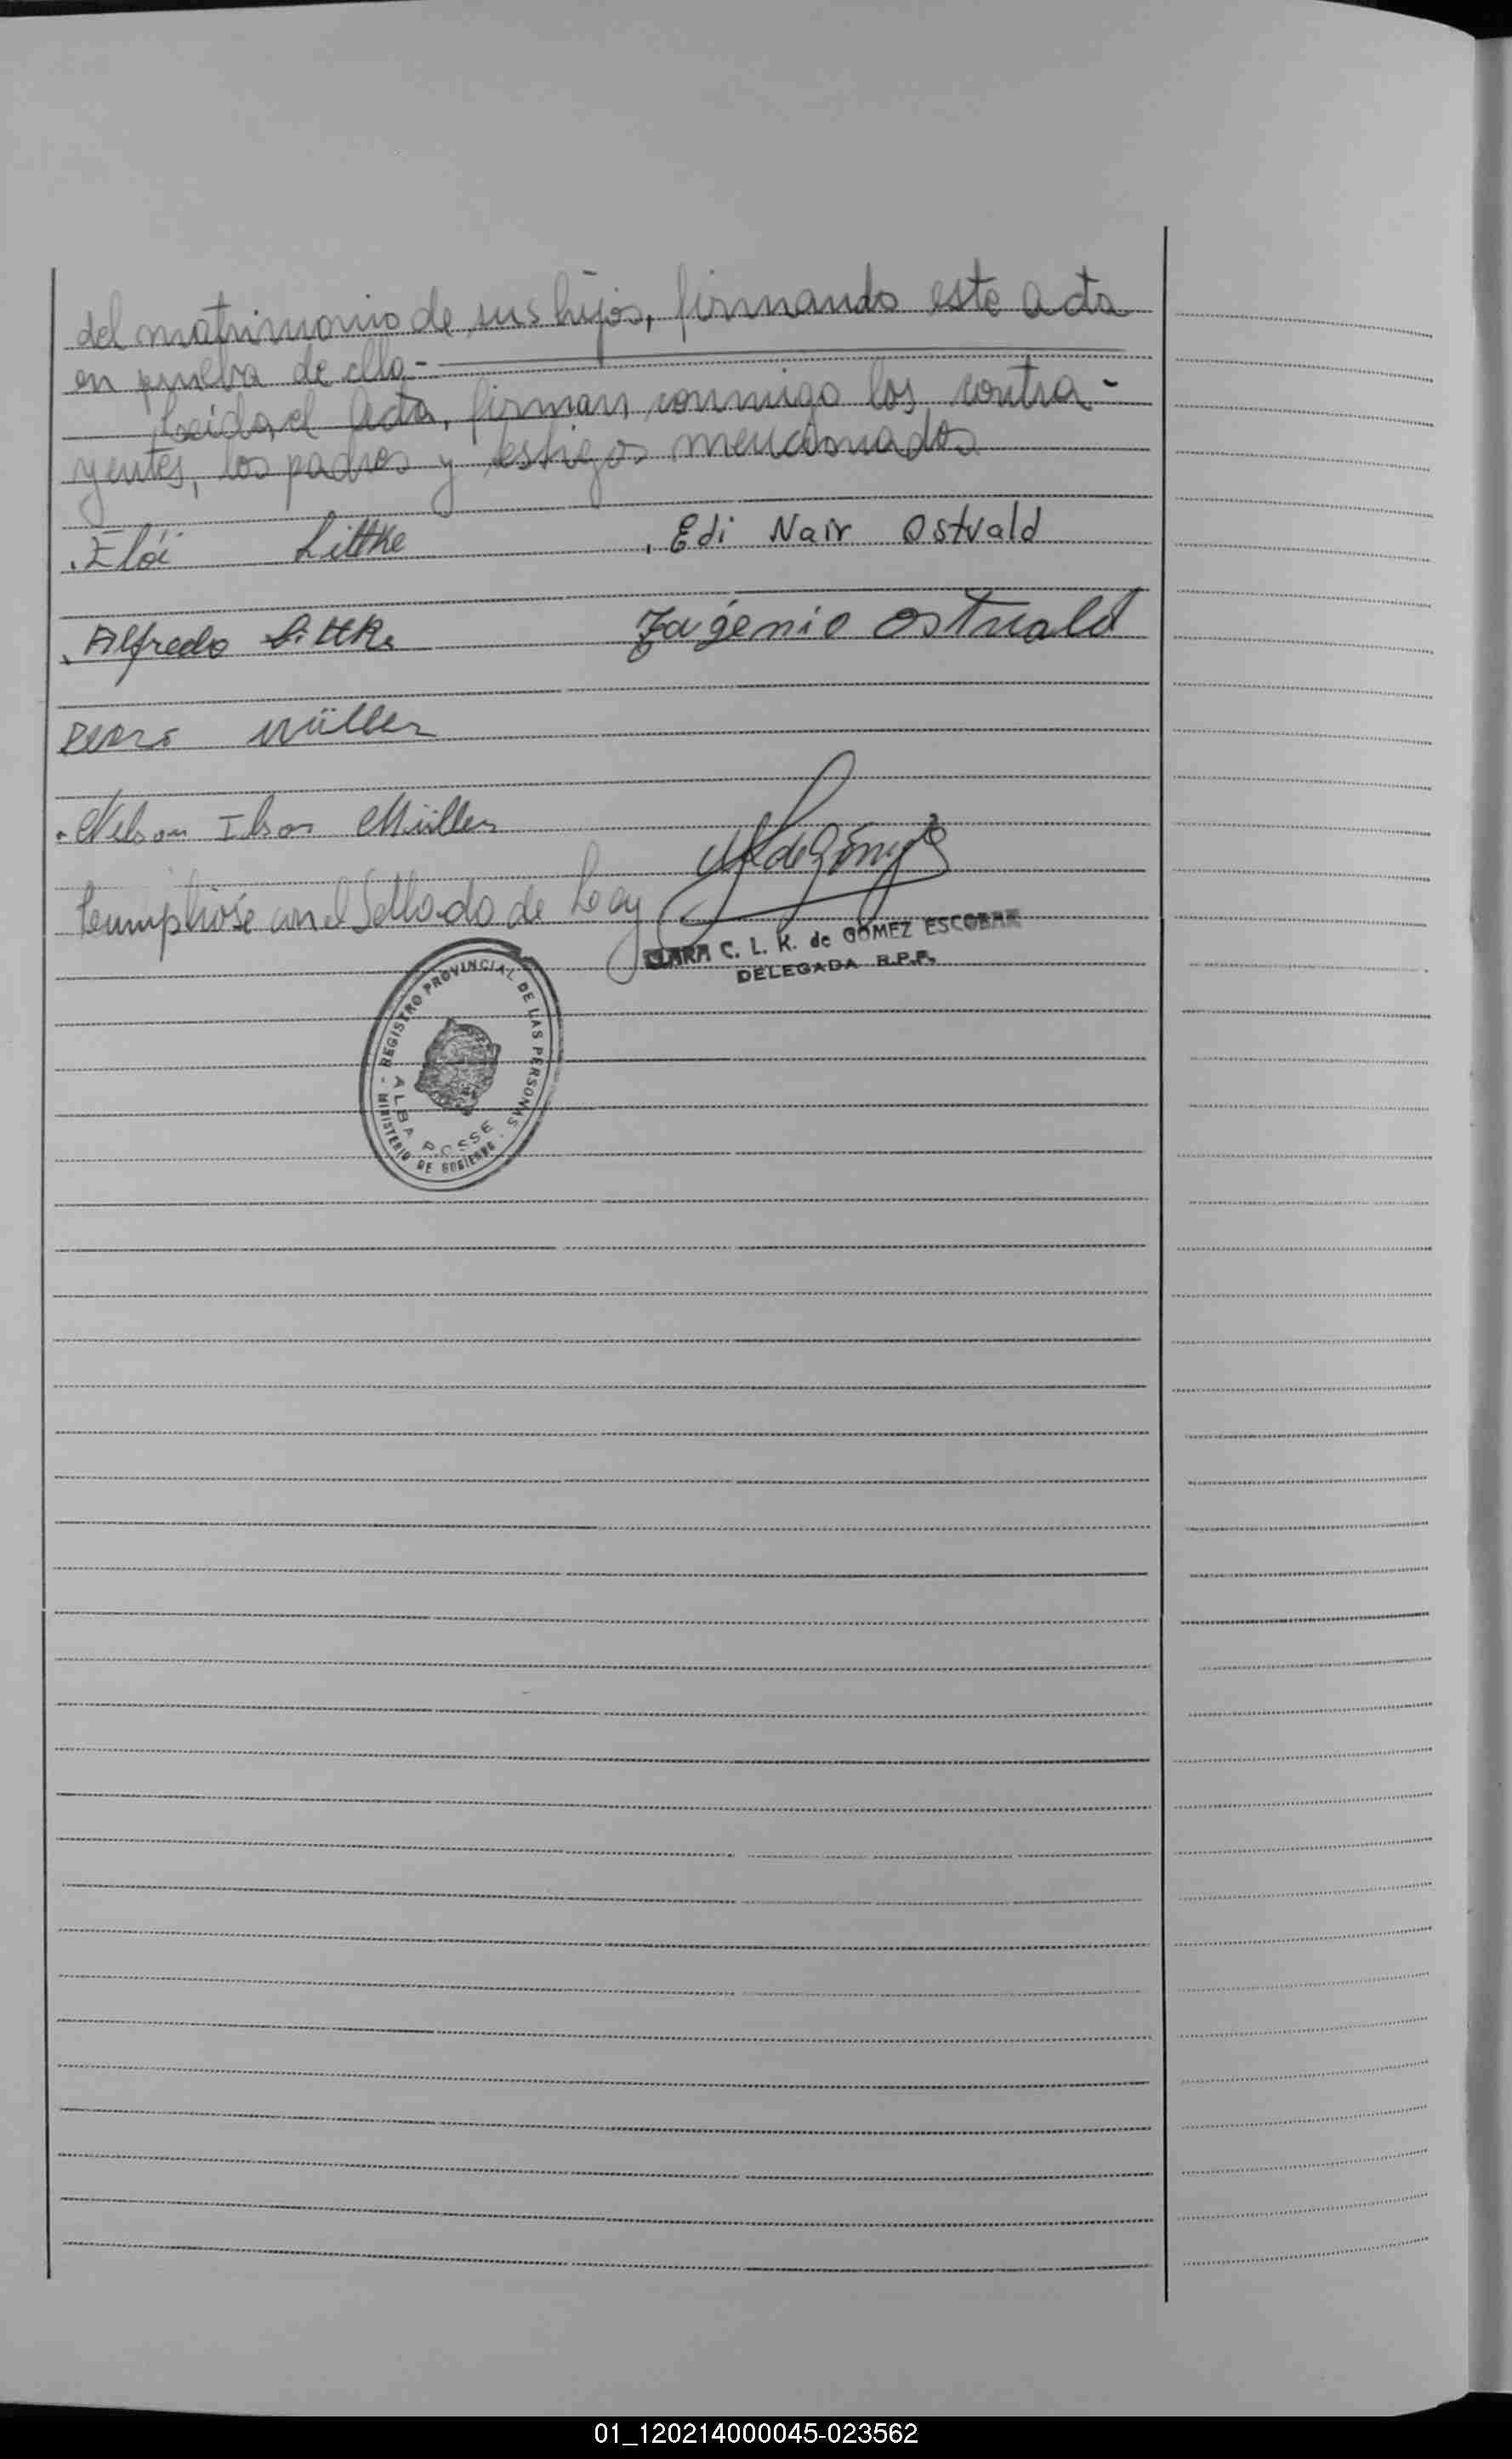 del matrimonio de sus hijos, firmando este acta
en prueba de ello.-
Leida el Acta, firman conmigo los contra-
yentes, los padres y testigos mencionados
Elói Littke
Edi Nair Ostvald
Alfredo Littke
Eugenio Ostwald
Müller
Nelson Ilson Müller
Cumplióse con el Sellado de Ley
CLARA C. L. K. de GOMEZ ESCOBAR
DELEGADA R.P.P.
- REGISTRO PROVINCIAL DE LAS PERSONAS -
MINISTERIO DE GOBIERNO
ALBA POSSE
01_120214000045-023562